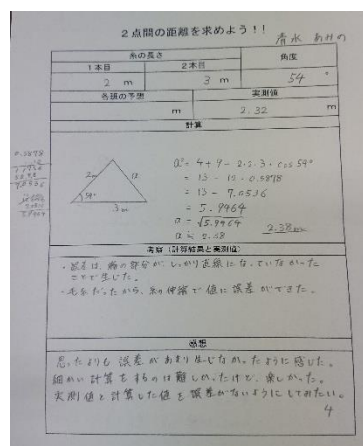 2点間の距離を求めよう!!
清水
糸の長さ
角度
1本目
2本目
2 m
3 m
54°
各班の予想
実測値
m
2.32 m
計算
0.5878
2m
54°
3m
a²= 4+9-2·2·3·cos54°
= 13 - 12·0.5878
= 13 - 7.0536
= 5.9464
a = √5.9464
2.38m
考察(計算結果と実測値)
しっかり直線になっていなかった
ことで生じた。
・毛糸だったから、糸の伸縮で値に誤差ができた。
感想
思ったよりも誤差があまり生じなかったように感じた。
細かい計算をするのは難しかったけど、楽しかった。
実測値と計算した値を誤差がないようにしてみたい。
4